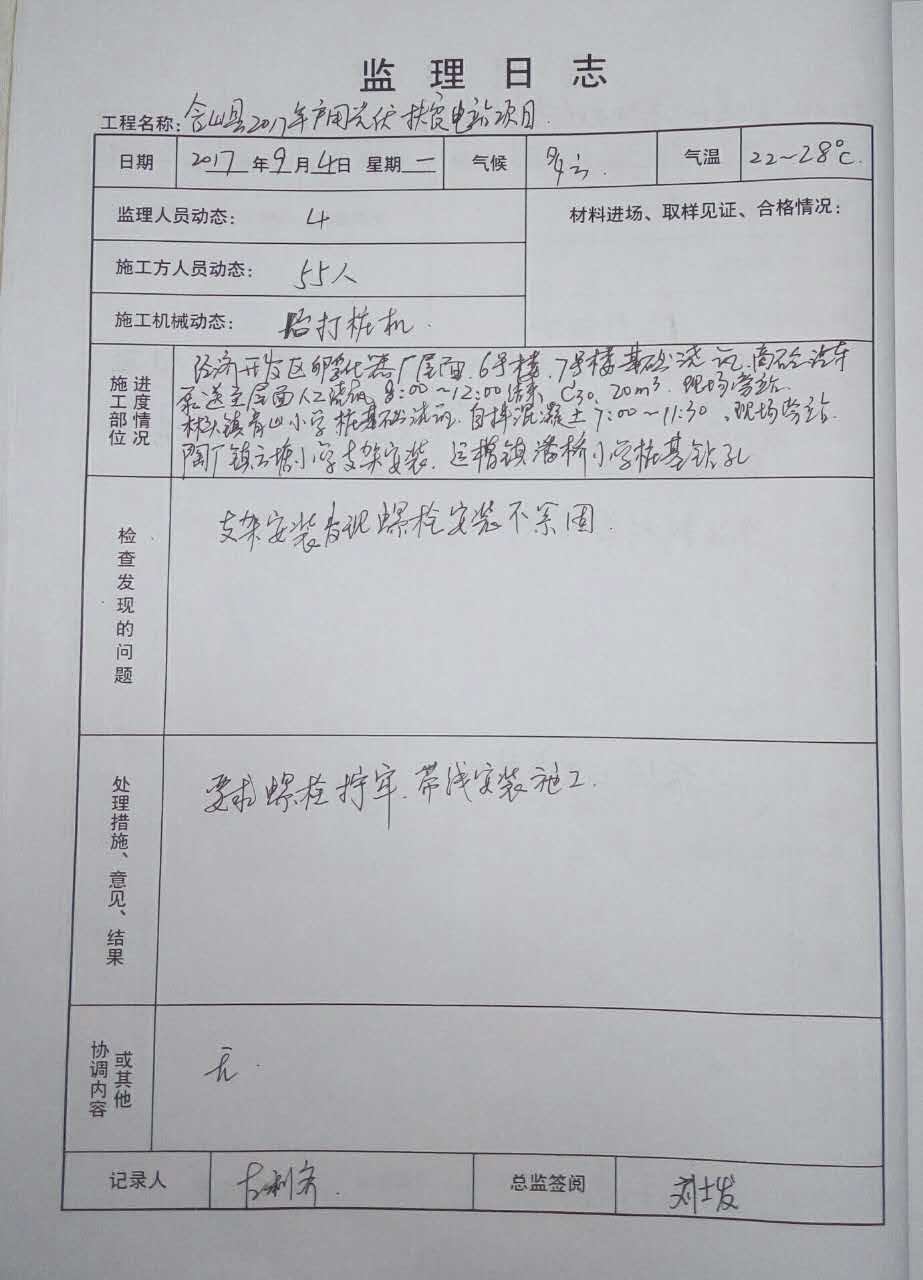 监理日志
工程名称：含山县2017年户用光伏扶贫电站项目.
日期 2017年9月4日 星期一 气候 多云. 气温 22～28℃.
监理人员动态： 4 材料进场、取样见证、合格情况：
施工方人员动态： 55人
施工机械动态： 打桩机.
施工部位 进度情况
经济开发区孵化器厂屋面.6号楼.7号楼基础浇筑.商砼汽车
泵送至屋面人工浇筑 8:00～12:00结束 C30、20m³.现场旁站.
林头镇青山小学桩基础浇筑.自拌混凝土7:00～11:30，现场旁站.
陶厂镇云塘小学支架安装.运漕镇 桥小学桩基钻孔
检查发现的问题 支架安装发现螺栓安装不紧固.
处理措施、意见、结果 要求螺栓拧牢.带线安装施工.
协调内容 或其他 无.
记录人 总监签阅 刘士发